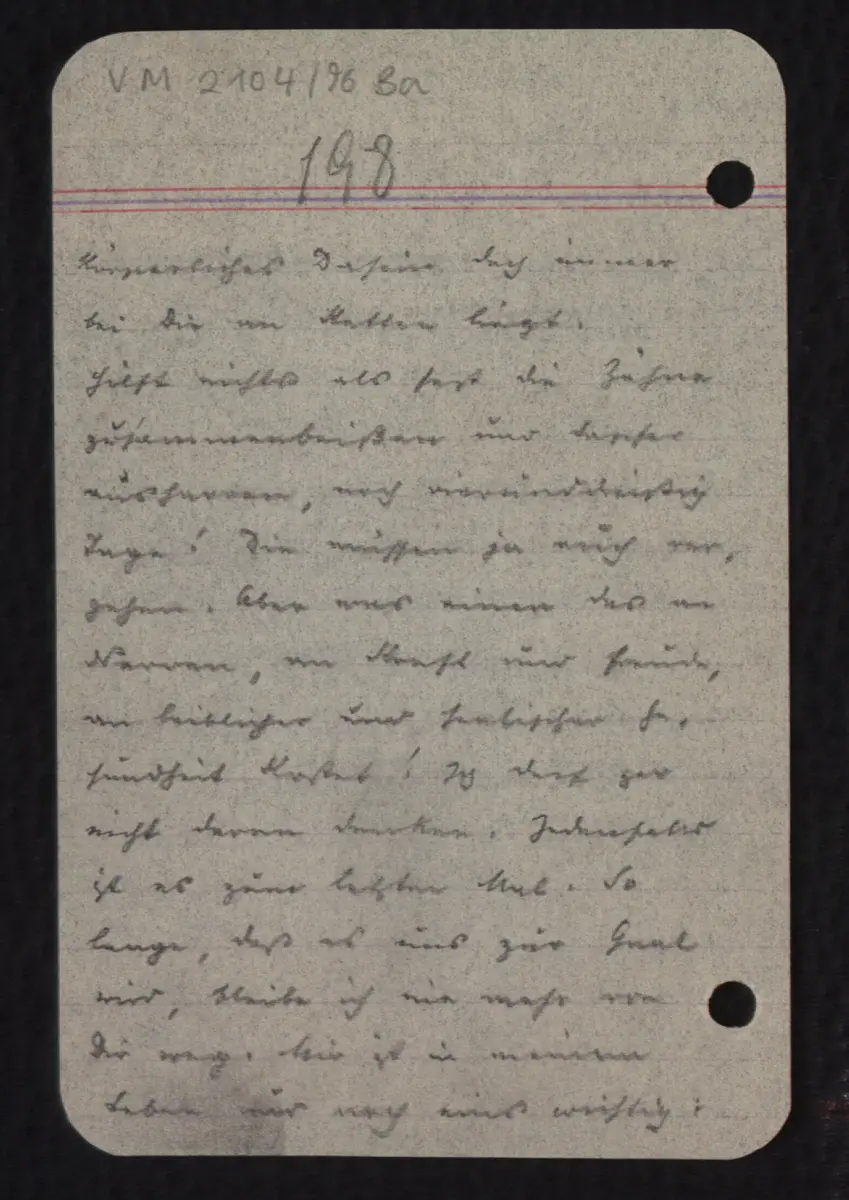 VM 2104/96 Ba
198
körperliches Dasein doch immer
bei Dir an Ketten liegt.
Hilft nichts als fest die Zähne
zusammenbeißen und tapfer
ausharren, noch vierunddreißig
Tage! Die müssen ja auch ver-
gehen. Aber was einen das an
Nerven, an Kraft und Freude,
an leiblicher und seelischer Ge-
sundheit kostet! Ich darf gar
nicht daran denken. Jedenfalls
ist es zum letzten Mal. So
lange, daß es uns zur Qual
wird, bleibe ich nie mehr von
Dir weg. Mir ist in meinem
Leben nur noch eins wichtig: